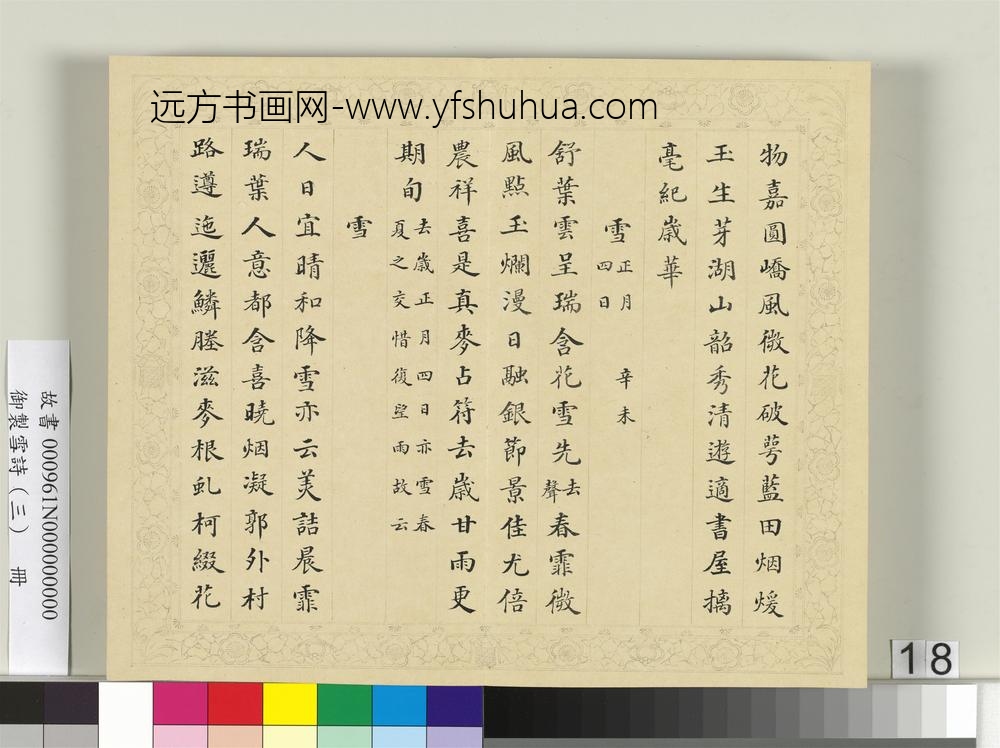 远方书画网-www.yfshuhua.com
物嘉圓嶠風微花破萼藍田烟煖
玉生芽湖山韶秀清遊適書屋摛
毫紀歲華
雪正月四日 辛未
舒葉雲呈瑞含花雪先去聲春霏微
風點玉爛漫日融銀節景佳尤倍
農祥喜是真麥占符去歲甘雨更
期旬去歲正月四日亦雪春夏之交惜復望雨故云
雪
人日宜晴和降雪亦云美詰晨霏
瑞葉人意都含喜曉烟凝郭外村
路遵迤邐鱗塍滋麥根虬柯綴花
故書 000961N000000000
御製雪詩(三) 冊
18